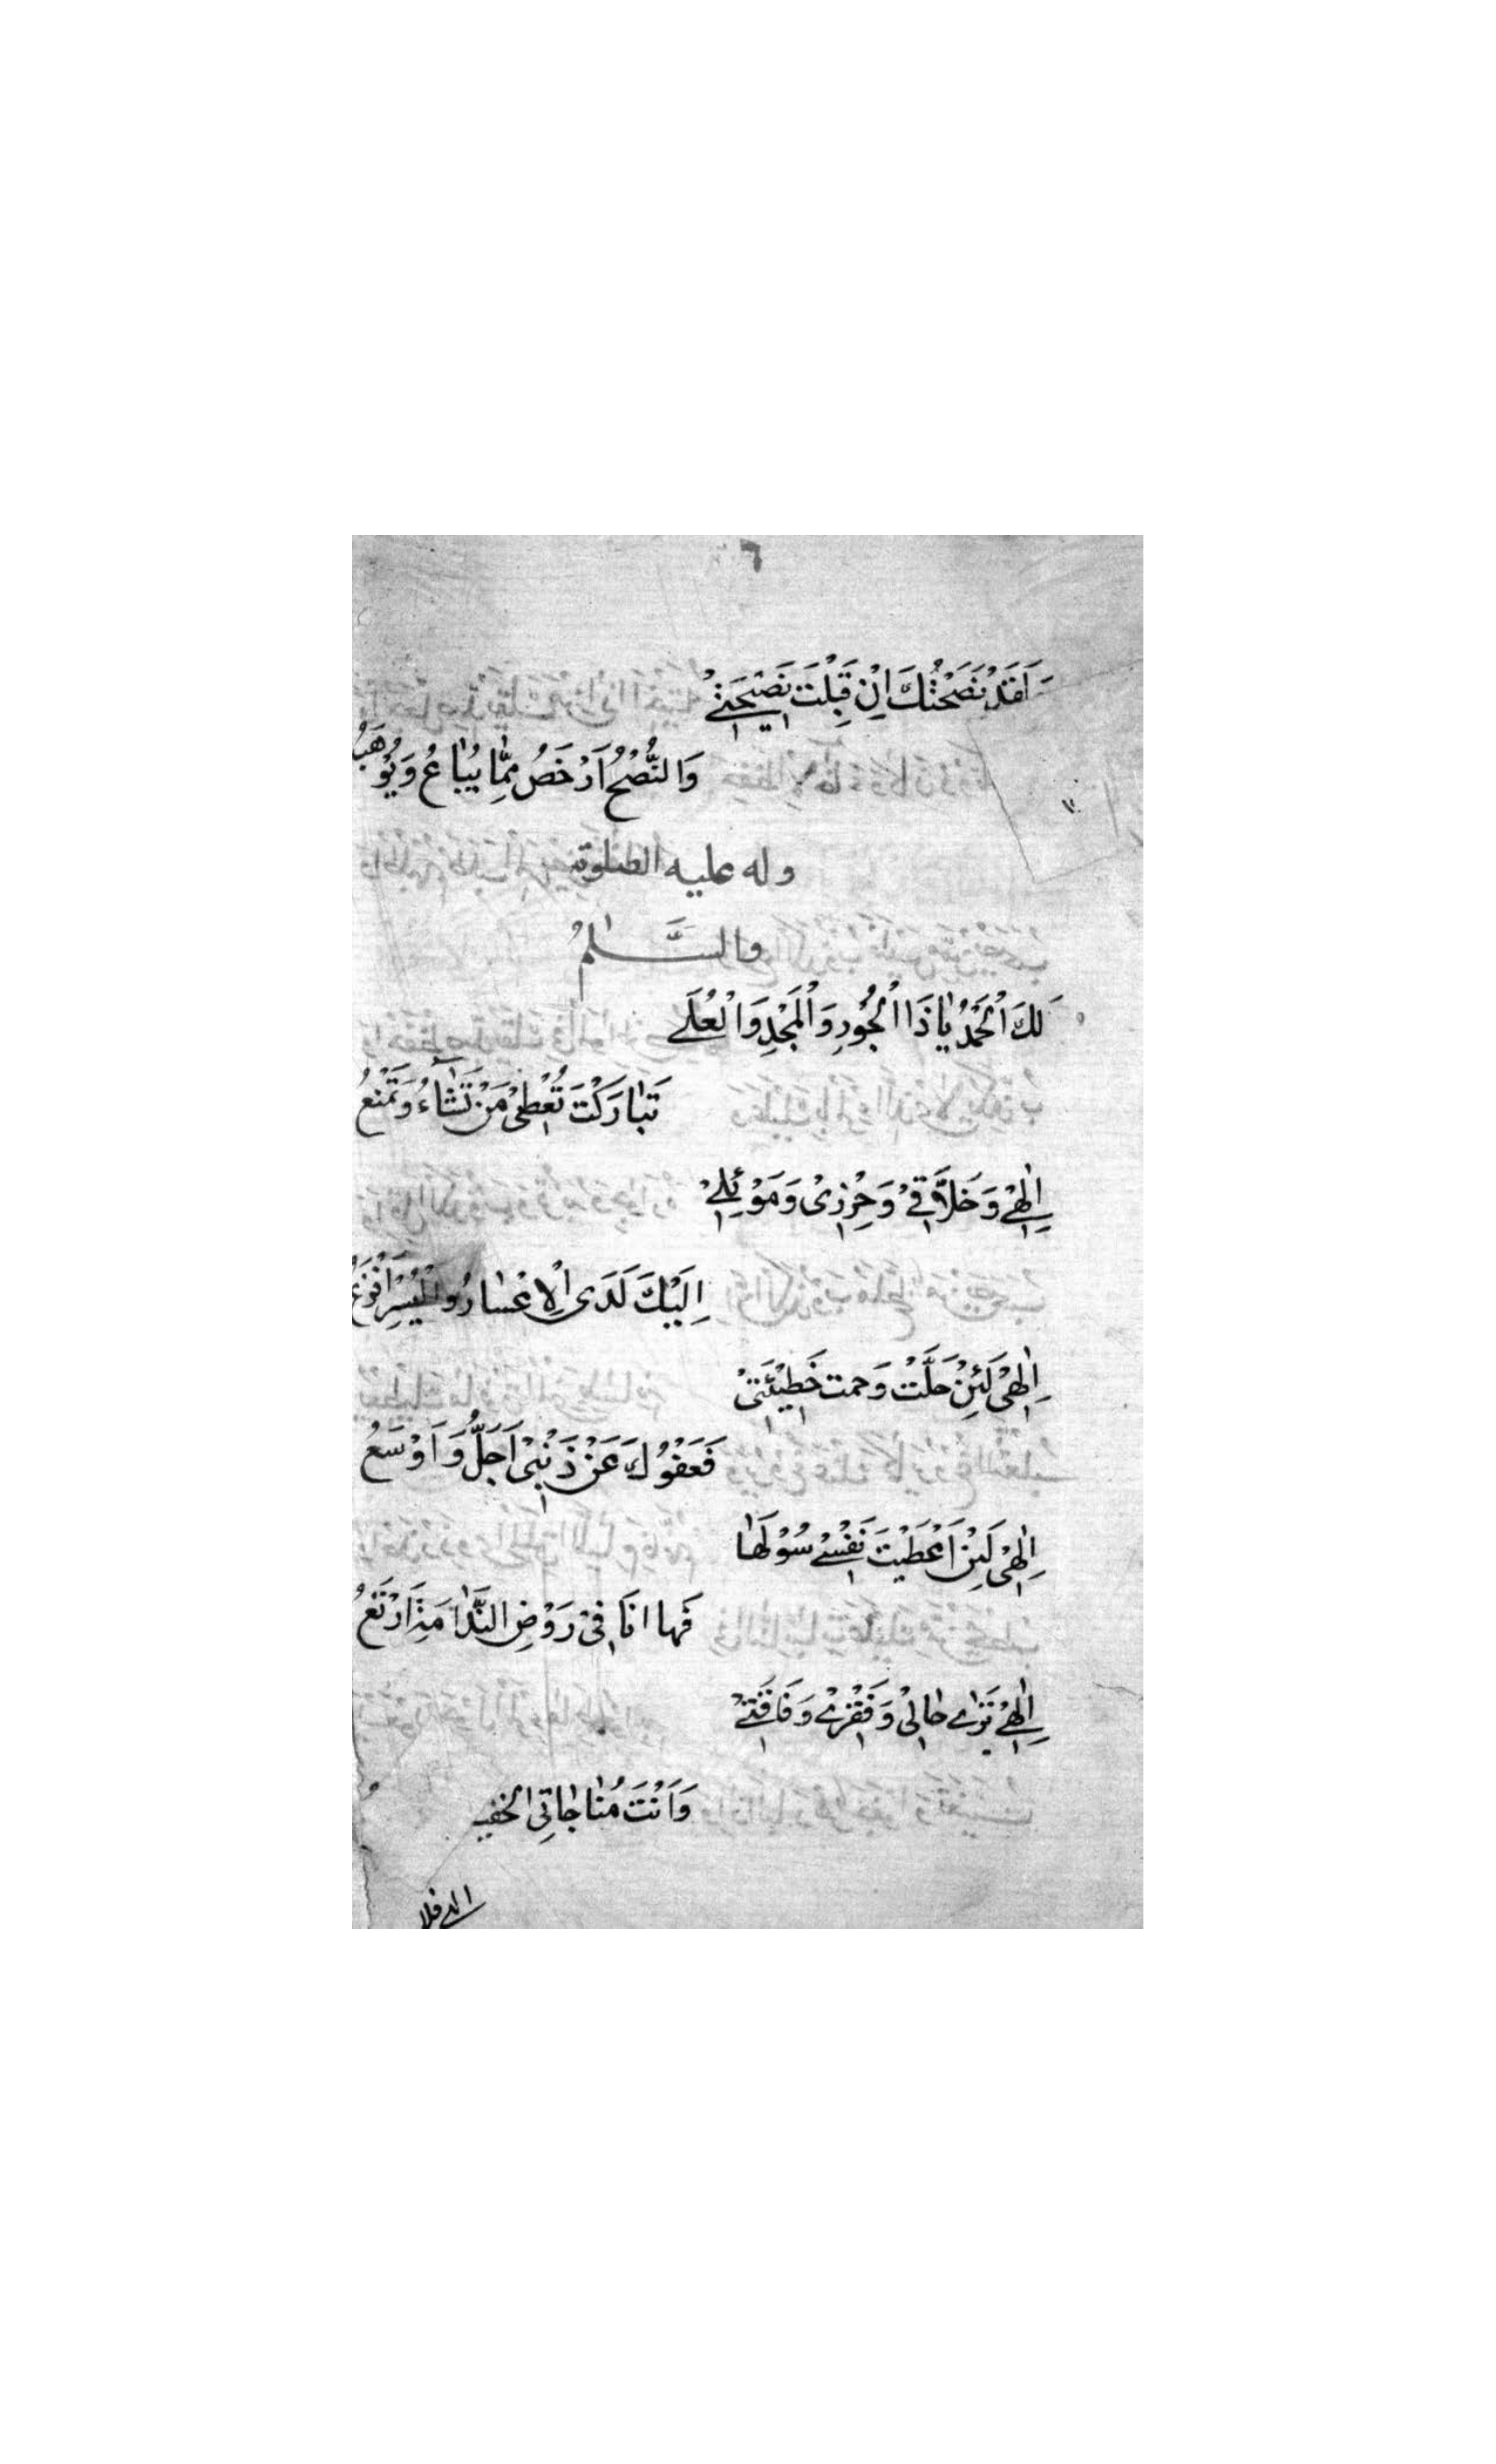 وَلَقَدْ نَصَحْتُكَ اِنْ قَبِلْتَ نَصِيْحَتِيْ
وَالنُّصْحُ اَرْخَصُ مِمَّا يُبٰاعُ وَيُوْهَبُ
وله عليه الصلوة
والسَّلٰمُ
لَكَ الْحَمْدُ يٰا ذَا الْجُوْدِ وَالْمَجْدِ وَالْعُلَے
تَبٰارَكْتَ تُعْطِیْ مَنْ تَشٰآءُ وَتَمْنَعُ
اِلٰهِیْ وَخَلَّاقِیْ وَحِرْزِیْ وَمَوْئِلِیْ
اِلَيْكَ لَدَی الْاِعْسٰارِ وَالْيُسْرِ اَفْزَعُ
اِلٰهِیْ لَئِنْ حَلَّتْ وَجمت خَطِيْئَتِیْ
فَعَفْوُكَ عَنْ ذَنْبِیْ اَجَلُّ وَاَوْسَعُ
اِلٰهِیْ لَئِنْ اَعْطَيْتَ نَفْسِیْ سُوْلَهٰا
فَها انَا فِیْ رَوْضِ النَّدٰامَةِ اَرْتَعُ
اِلٰهِیْ تَرٰے حٰالِیْ وَفَقْرِیْ وَفَاقَتِیْ
وَاَنْتَ مُنٰاجٰاتِی الخفيه